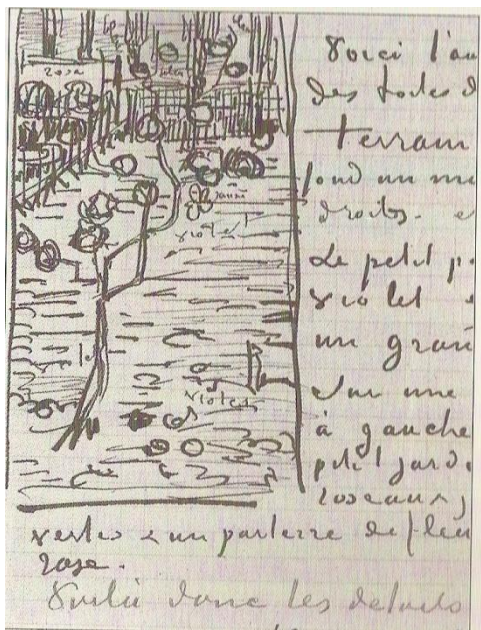 rose
jaune
violet
violet
Voici l'au
des toiles d
terrain
fond un mu
droits. e
Le petit p
violet
un gran
sur une
à gauche
petit jard
roseaux,
vertes & un parterre de fleu
rose.
Voilà donc les details